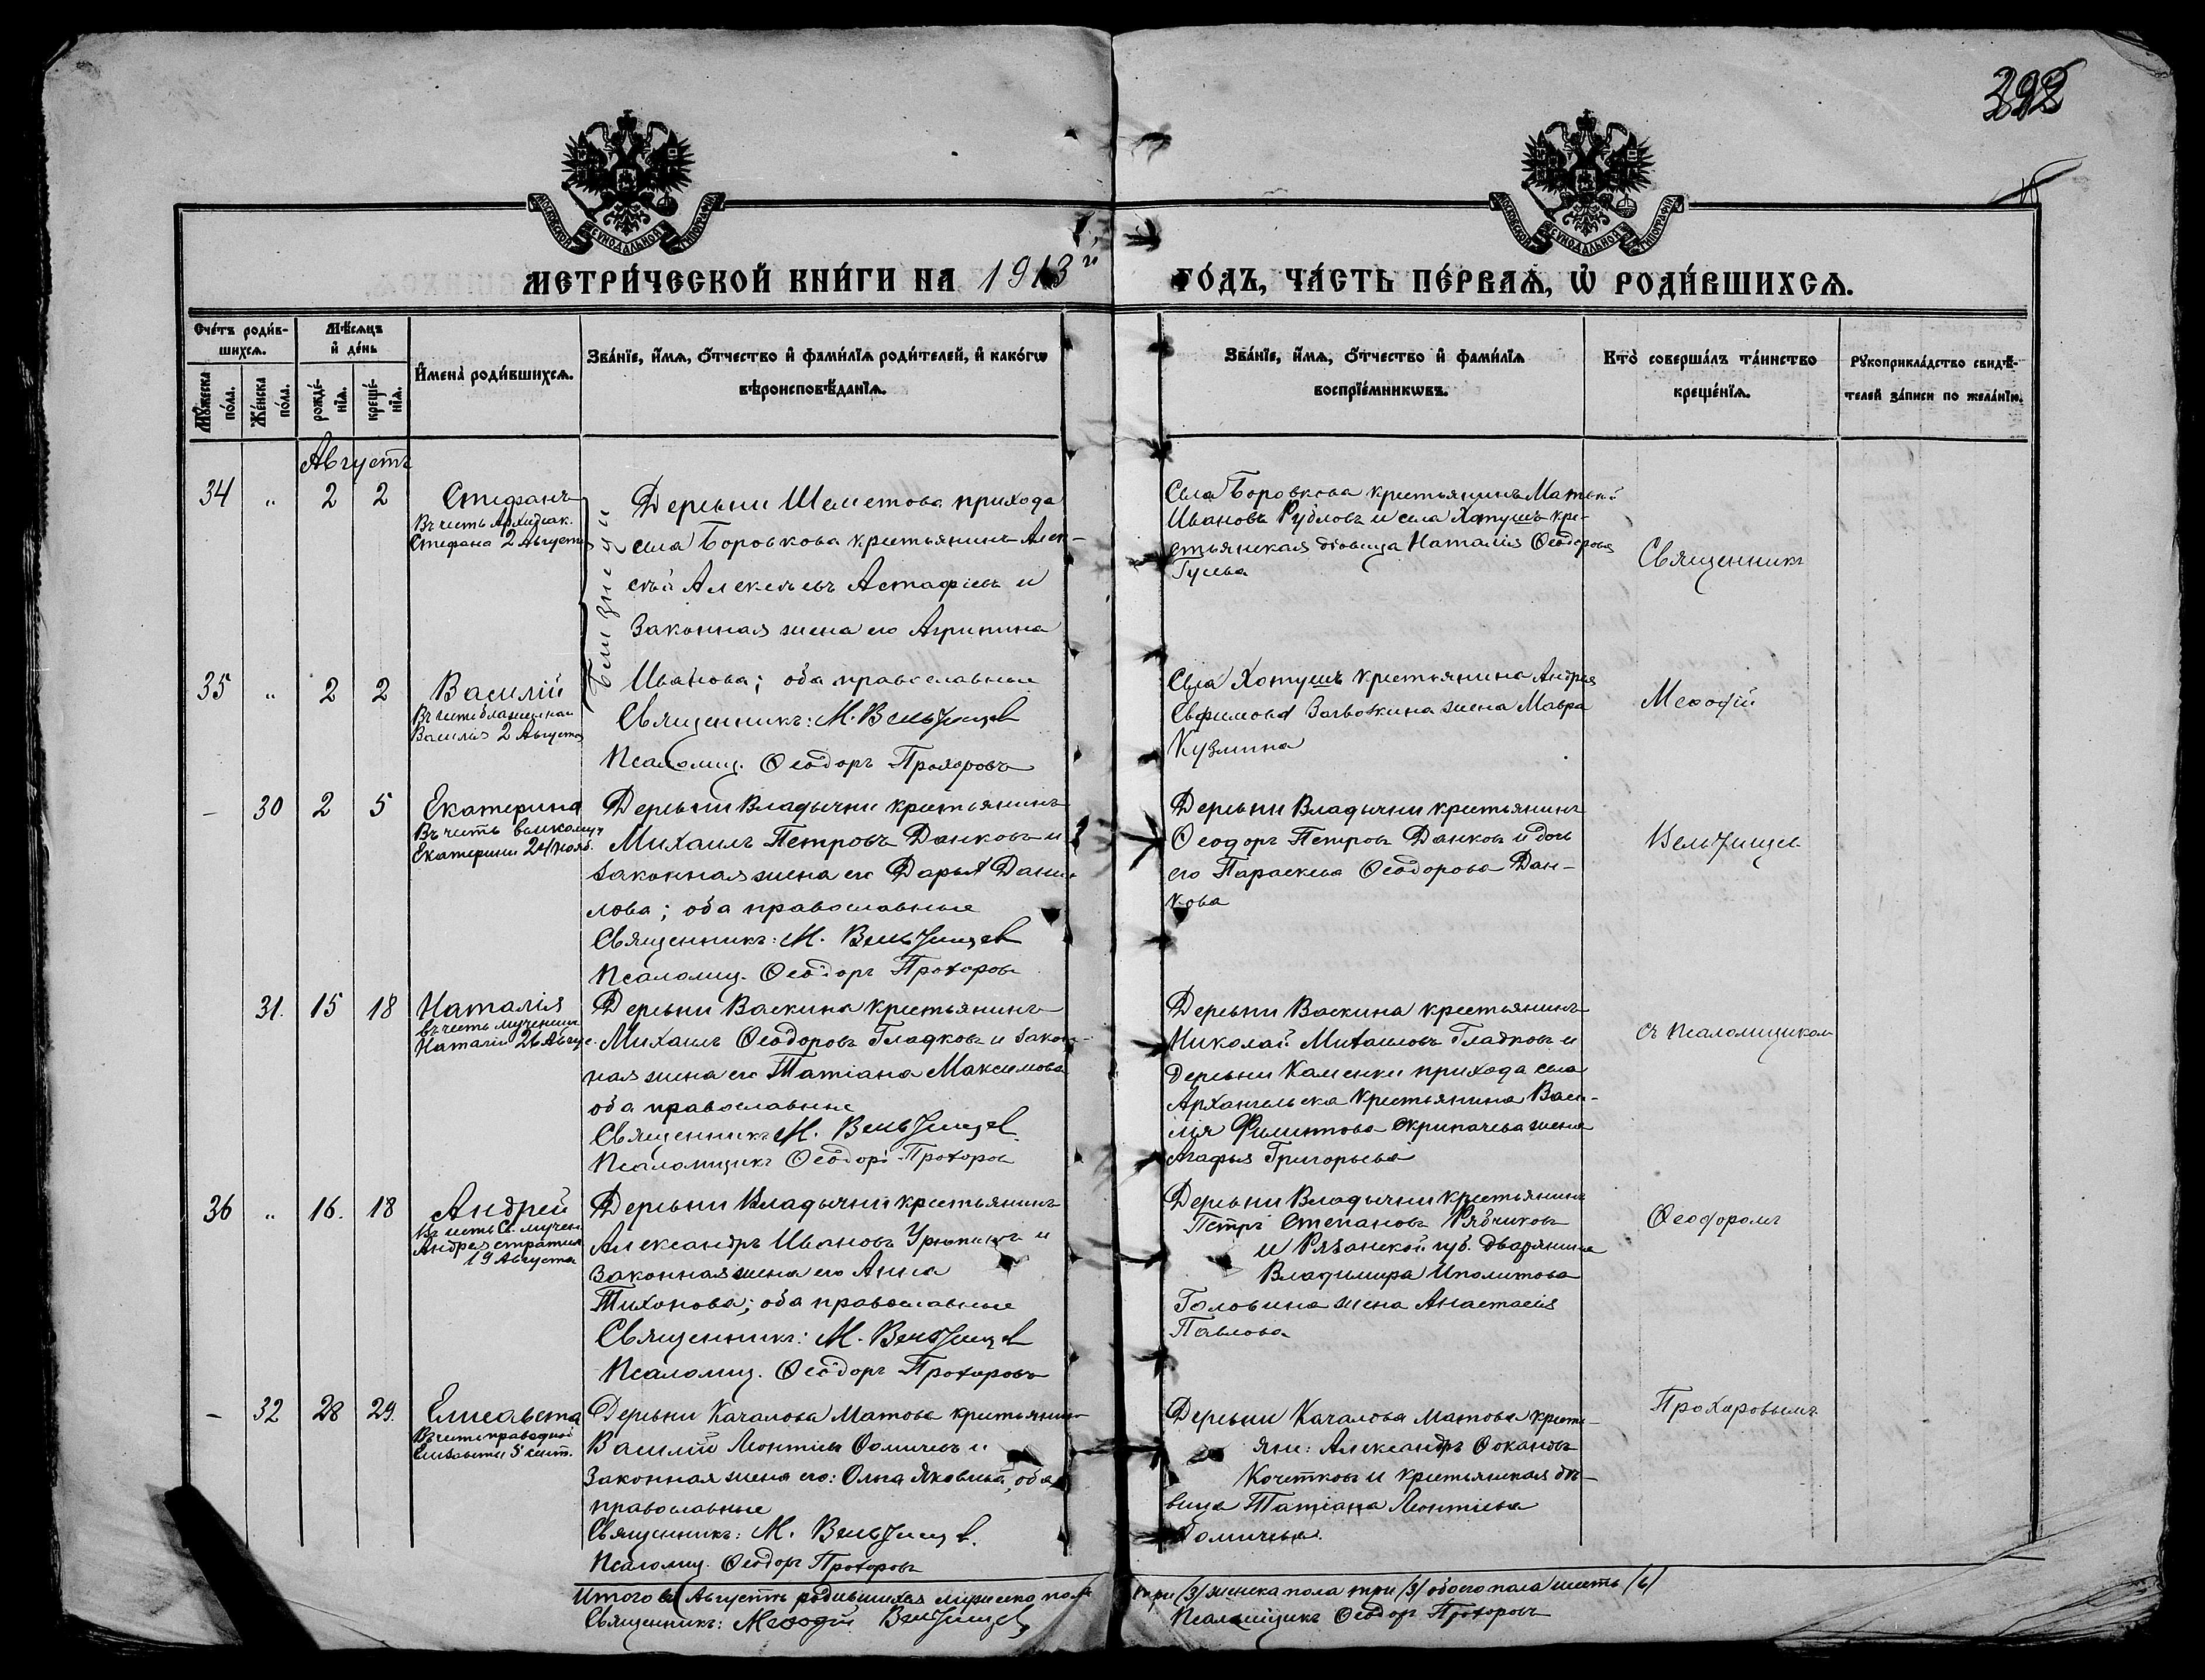 392
МОСКОВСКОЙ СѴНОДАЛЬНОЙ ТИПОГРАФІИ
МОСКОВСКОЙ СѴНОДАЛЬНОЙ ТИПОГРАФІИ
МЕТРИ́ЧЕСКОЙ КНИ́ГИ НА 1913й ГО́ДЪ, ЧА́СТЬ ПЕ́РВАѦ, Ѡ҆ РОДИ́ВШИХСѦ.
Сче́тъ роди́в-
шихсѧ.
Мꙋ́жеска по́ла.
Же́нска по́ла.
Мѣ́сѧцъ
и҆ де́нь
рожде́-
нїѧ.
креще́-
нїѧ.
И҆мена̀ роди́вшихсѧ.
Зва́нїе, и҆́мѧ, ѻ҆́тчество и҆ фами́лїѧ роди́телей, и҆ како́гѡ
вѣроисповѣ́данїѧ.
Зва́нїе, и҆́мѧ, ѻ҆́тчество и҆ фами́лїѧ
воспрїе́мникѡвъ.
Кто̀ соверша́лъ та́инство
креще́нїѧ.
Рꙋкоприкла́дство свидѣ́-
телей за́писи по жела́нїю.
Августъ
34 " 2 2 Стефанъ
Въ честь Архидіак.
Стефана 2 Августа
Близнецы
Деревни Шеметова прихода
села Боровкова крестьянинъ Алек-
сѣй Алексѣевъ Астафіевъ и
законная жена его Агрипина
Иванова; оба православные
Священникъ: М. Вельтищев
Псаломщ. Ѳеодоръ Прохоровъ
Села Боровкова крестьянинъ Матвѣй
Ивановъ Рубловъ и села Хотушъ кре-
стьянская вдовица Наталія Ѳеодорова
Гусева
Священникъ
35 " 2 2 Василій
Въ честь блаженнаго
Василія 2 Августа
Села Хотушъ крестьянина Андрея
Евфимова Загвоскина жена Мавра
Кузмина
Меѳодій
- 30 2 5 Екатерина
Въ честь великомуч
Екатерины 24 нояб.
Деревни Владычни крестьянинъ
Михаилъ Петровъ Данковъ и
законная жена его Дарья Дани-
лова; оба православные
Священникъ: М. Вельтищев
Псаломщ. Ѳеодоръ Прохоровъ
Деревни Владычни крестьянинъ
Ѳеодоръ Петровъ Данковъ и дочь
его Параскева Ѳеодорова Дан-
кова
Вельтищевъ
31. 15 18 Наталія
въ честь мученицы
Наталіи 26 Авгус.
Деревни Васкина крестьянинъ
Михаилъ Ѳеодоровъ Гладковъ и закон-
ная жена его Татіана Максимова
оба православные
Священникъ М. Вельтищев
Псаломщикъ Ѳеодоръ Прохоровъ
Деревни Васкина крестьянинъ
Николай Михаиловъ Гладковъ и
деревни Каменки прихода села
Архангельска крестьянина Васи-
лія Филиппова Скрипачева жена
Агафья Григорьева
съ псаломщикомъ
36 " 16. 18 Андрей
Въ честь Св. мучен.
Андрея стратил.
19 Августа
Деревни Владычни крестьянинъ
Александръ Ивановъ Урюпинъ и
законная жена его Анна
Тихонова; оба православные
Священникъ: М. Вельтищев
Псаломщ. Ѳеодоръ Прохоровъ
Деревни Владычни крестьянинъ
Петръ Степановъ Рябчиковъ
и Рязанской губ. дворянина
Владимира Иполитова
Головина жена Анастасія
Павлова
Ѳеодоромъ
- 32 28 29. Елисавета
Въ честь праведной
Елисаветы 5 сент.
Деревни Качалова Матова крестьянинъ
Василій Леонтіевъ Ѳомичевъ и
законная жена его: Ольга Яковлева, оба
православные
Священникъ: М. Вельтищев.
Псаломщ. Ѳеодоръ Прохоровъ
Деревни Качалова Матова кресть-
яни: Александръ
Кочетковъ и крестьянская дѣ-
вица Татіана Леонтіева
Ѳомичева.
Прохоровымъ
Итого въ Августѣ родившихся мужеска пола три /3/ женска пола три /3/ обоего пола шесть /6/
Священникъ: Меѳодій Вельтищев Псаломщикъ Ѳеодоръ Прохоровъ